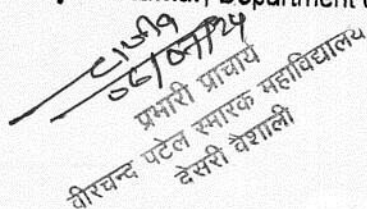 Department
06/07/24
प्रभारी प्राचार्य
वीरचन्द पटेल स्मारक महाविद्यालय
देसरी वैशाली